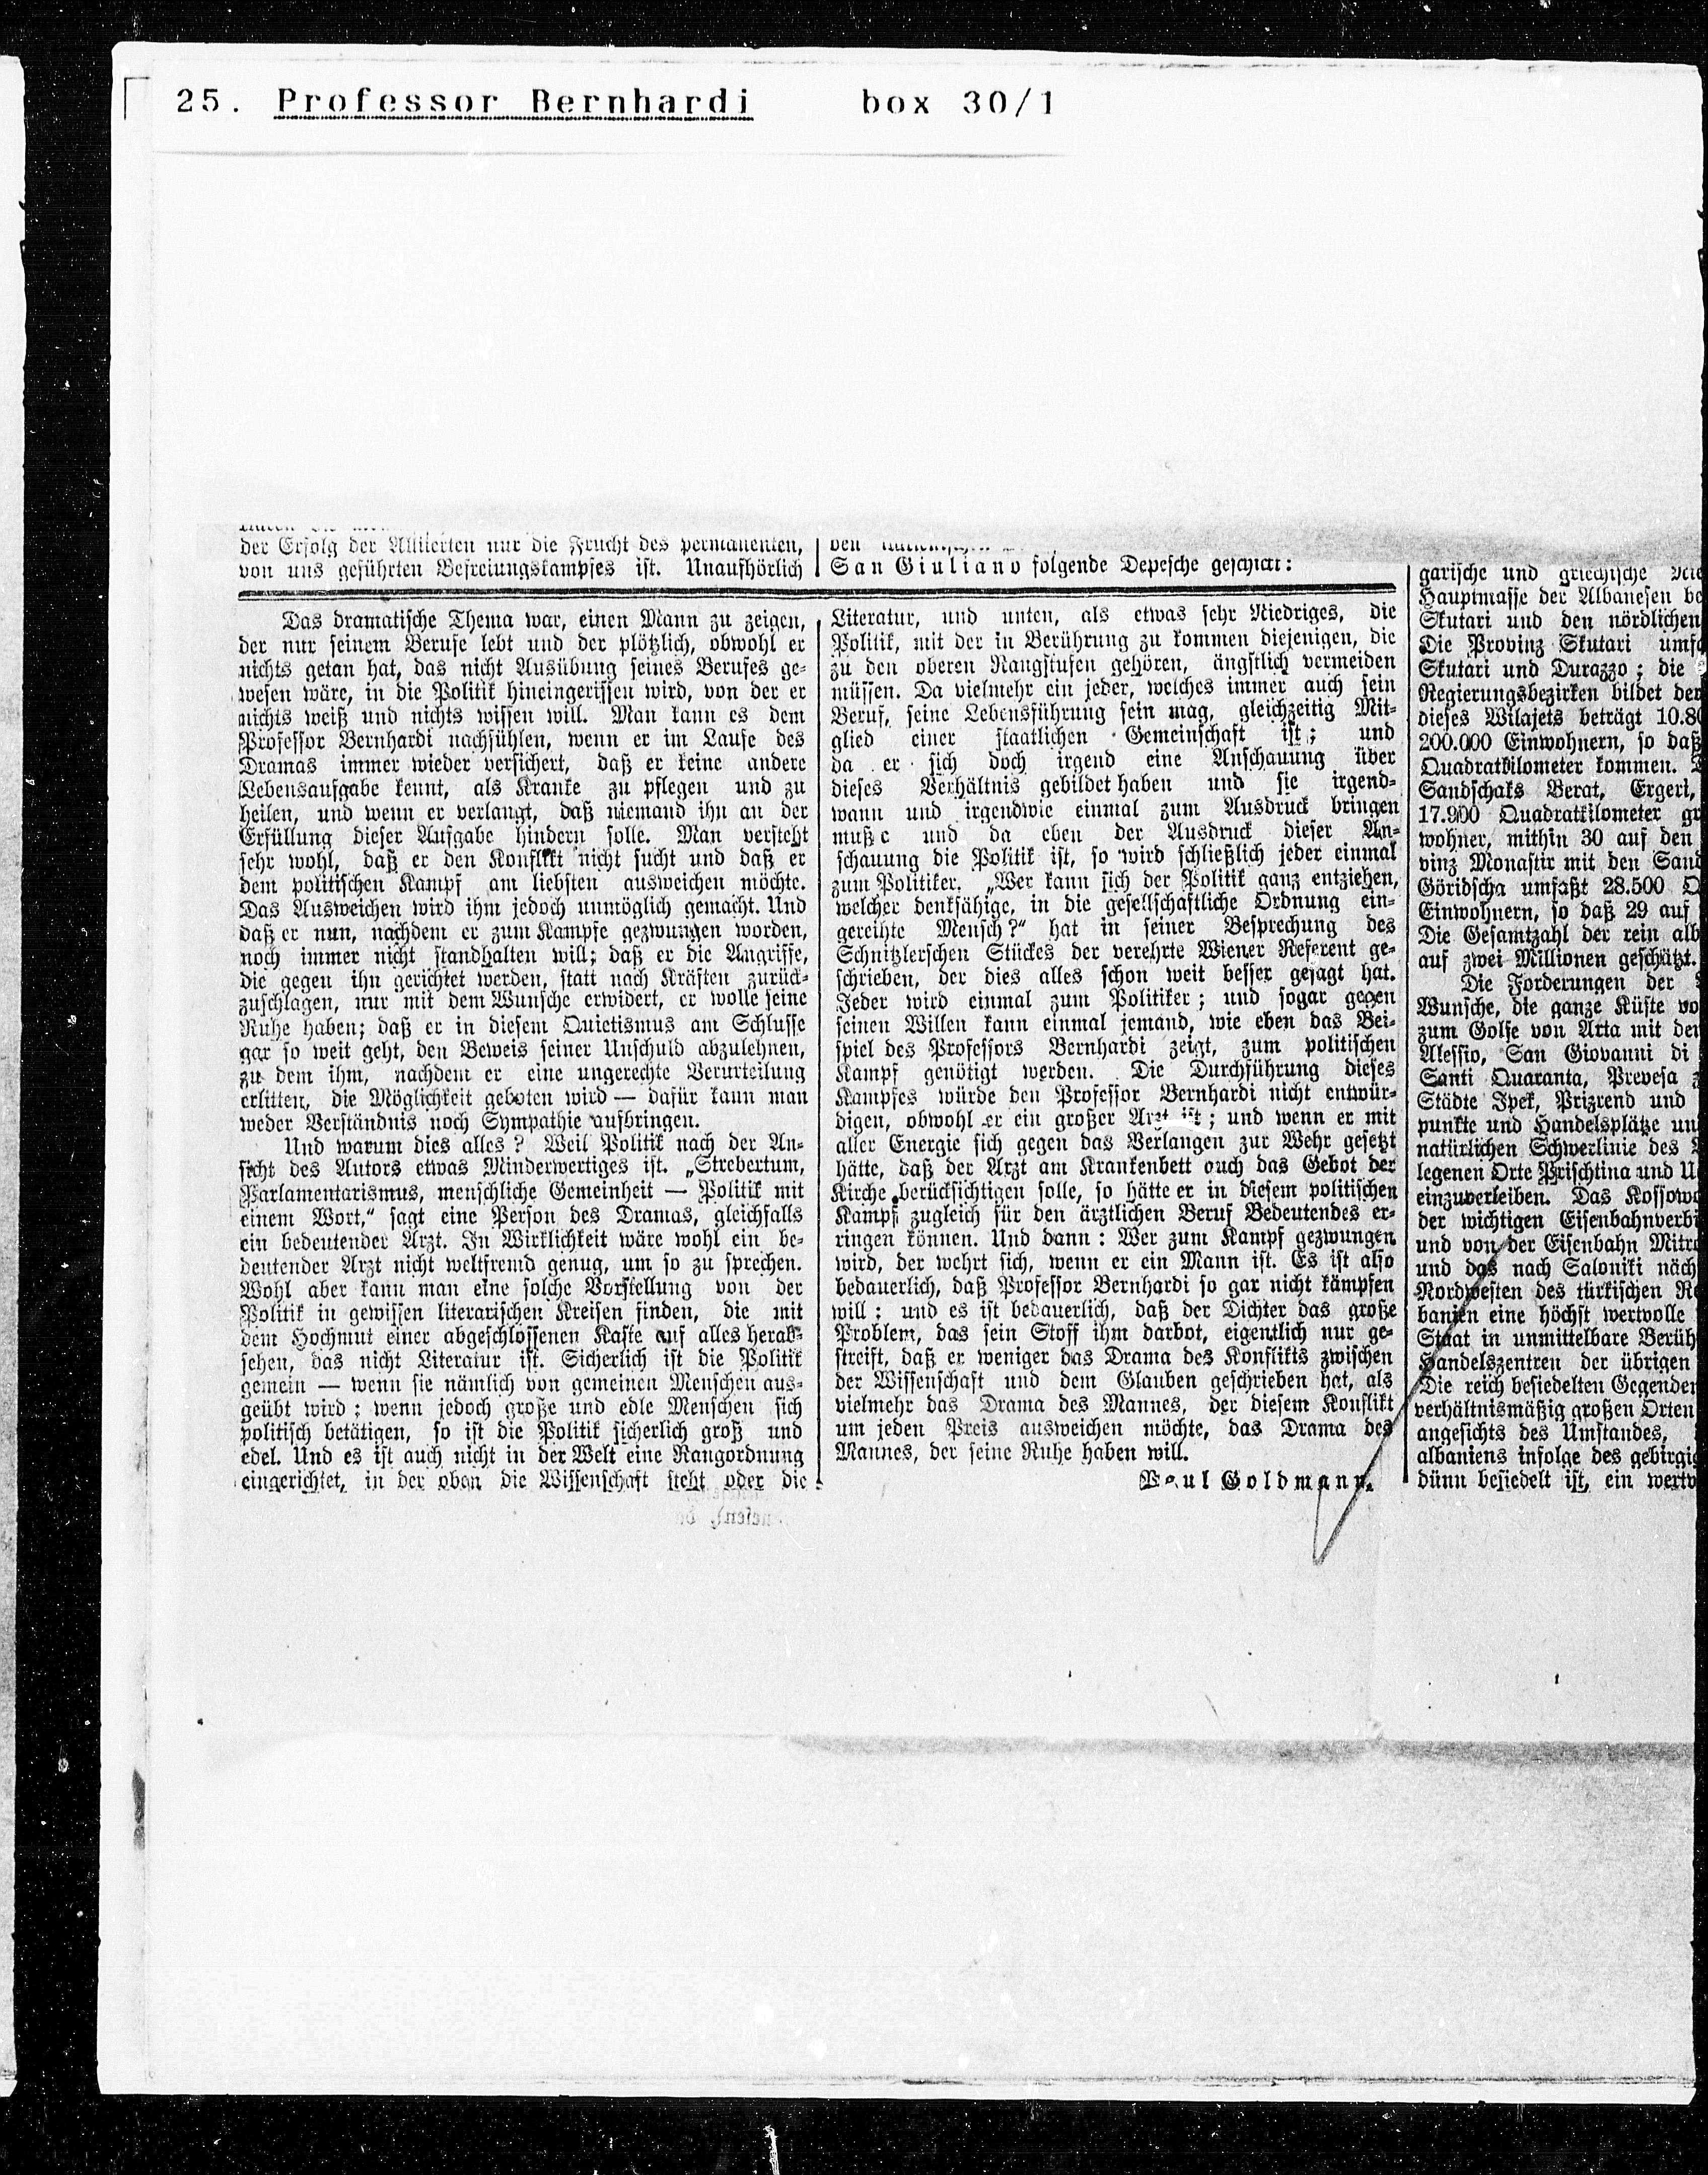 25. Professor Bernhardi box 30/1
der Erfolg der Alliierten nur die Frucht des permanenten,
von uns geführten Befreiungskampfes ist. Unaufhörlich
den
San Giuliano folgende Depesche geschickt:
Das dramatische Thema war, einen Mann zu zeigen,
der nur seinem Berufe lebt und der plötzlich, obwohl er
nichts getan hat, das nicht Ausübung seines Berufes ge-
wesen wäre, in die Politik hineingerissen wird, von der er
nichts weiß und nichts wissen will. Man kann es dem
Professor Bernhardi nachfühlen, wenn er im Laufe des
Dramas immer wieder versichert, daß er keine andere
Lebensaufgabe kennt, als Kranke zu pflegen und zu
heilen, und wenn er verlangt, daß niemand ihn an der
Erfüllung dieser Aufgabe hindern solle. Man versteht
sehr wohl, daß er den Konflikt nicht sucht und daß er
dem politischen Kampf am liebsten ausweichen möchte.
Das Ausweichen wird ihm jedoch unmöglich gemacht. Und
daß er nun, nachdem er zum Kampfe gezwungen worden,
noch immer nicht standhalten will; daß er die Angriffe,
die gegen ihn gerichtet werden, statt nach Kräften zurück-
zuschlagen, nur mit dem Wunsche erwidert, er wolle seine
Ruhe haben; daß er in diesem Quietismus am Schlusse
gar so weit geht, den Beweis seiner Unschuld abzulehnen,
zu dem ihm, nachdem er eine ungerechte Verurteilung
erlitten, die Möglichkeit geboten wird — dafür kann man
weder Verständnis noch Sympathie aufbringen.
Und warum dies alles? Weil Politik nach der An-
sicht des Autors etwas Minderwertiges ist. „Strebertum,
Parlamentarismus, menschliche Gemeinheit — Politik mit
einem Wort,“ sagt eine Person des Dramas, gleichfalls
ein bedeutender Arzt. In Wirklichkeit wäre wohl ein be-
deutender Arzt nicht weltfremd genug, um so zu sprechen.
Wohl aber kann man eine solche Vorstellung von der
Politik in gewissen literarischen Kreisen finden, die mit
dem Hochmut einer abgeschlossenen Kaste auf alles herab-
sehen, das nicht Literatur ist. Sicherlich ist die Politik
gemein — wenn sie nämlich von gemeinen Menschen aus-
geübt wird; wenn jedoch große und edle Menschen sich
politisch betätigen, so ist die Politik sicherlich groß und
edel. Und es ist auch nicht in der Welt eine Rangordnung
eingerichtet, in der oben die Wissenschaft steht oder die
Literatur, und unten, als etwas sehr Niedriges, die
Politik, mit der in Berührung zu kommen diejenigen, die
zu den oberen Rangstufen gehören, ängstlich vermeiden
müssen. Da vielmehr ein jeder, welches immer auch sein
Beruf, seine Lebensführung sein mag, gleichzeitig Mit-
glied einer staatlichen Gemeinschaft ist; und
da er sich doch irgend eine Anschauung über
dieses Verhältnis gebildet haben und sie irgend-
wann und irgendwie einmal zum Ausdruck bringen
muß e und da eben der Ausdruck dieser An-
schauung die Politik ist, so wird schließlich jeder einmal
zum Politiker. „Wer kann sich der Politik ganz entziehen,
welcher denkfähige, in die gesellschaftliche Ordnung ein-
gereihte Mensch?“ hat in seiner Besprechung des
Schnitzlerschen Stückes der verehrte Wiener Referent ge-
schrieben, der dies alles schon weit besser gesagt hat.
Jeder wird einmal zum Politiker; und sogar gegen
seinen Willen kann einmal jemand, wie eben das Bei-
spiel des Professors Bernhardi zeigt, zum politischen
Kampf genötigt werden. Die Durchführung dieses
Kampfes würde den Professor Bernhardi nicht entwür-
digen, obwohl er ein großer Arzt ist; und wenn er mit
aller Energie sich gegen das Verlangen zur Wehr gesetzt
hätte, daß der Arzt am Krankenbett auch das Gebot der
Kirche berücksichtigen solle, so hätte er in diesem politischen
Kampf zugleich für den ärztlichen Beruf Bedeutendes er-
ringen können. Und dann: Wer zum Kampf gezwungen
wird, der wehrt sich, wenn er ein Mann ist. Es ist also
bedauerlich, daß Professor Bernhardi so gar nicht kämpfen
will; und es ist bedauerlich, daß der Dichter das große
Problem, das sein Stoff ihm darbot, eigentlich nur ge-
streift, daß er weniger das Drama des Konflikts zwischen
der Wissenschaft und dem Glauben geschrieben hat, als
vielmehr das Drama des Mannes, der diesem Konflikt
um jeden Preis ausweichen möchte, das Drama des
Mannes, der seine Ruhe haben will.
Paul Goldmann.
garische und griechische
Hauptmasse der Albanesen be
Skutari und den nördlichen
Die Provinz Skutari umfa
Skutari und Durazzo; die
Regierungsbezirken bildet den
dieses Wilajets beträgt 10.80
200.000 Einwohnern, so daß
Quadratkilometer kommen.
Sandschaks Berat, Ergeri,
17.900 Quadratkilometer gr
wohner, mithin 30 auf den
vinz Monastir mit den Sand
Göridscha umfaßt 28.500 Q
Einwohnern, so daß 29 auf
Die Gesamtzahl der rein alb
auf zwei Millionen geschätzt.
Die Forderungen der
Wunsche, die ganze Küste vo
zum Golfe von Arta mit den
Alessio, San Giovanni di
Santi Quaranta, Prevesa z
Städte Ipek, Prizrend und
punkte und Handelsplätze un
natürlichen Schwerlinie des
legenen Orte Prischtina und U
einzuverleiben. Das Kossowo
der wichtigen Eisenbahnverbi
und von der Eisenbahn Mitro
und das nach Saloniki näch
Nordwesten des türkischen Re
banien eine höchst wertvolle
Staat in unmittelbare Berüh
Handelszentren der übrigen
Die reich besiedelten Gegenden
verhältnismäßig großen Orten
angesichts des Umstandes,
albaniens infolge des gebirgig
dünn besiedelt ist, ein wertv